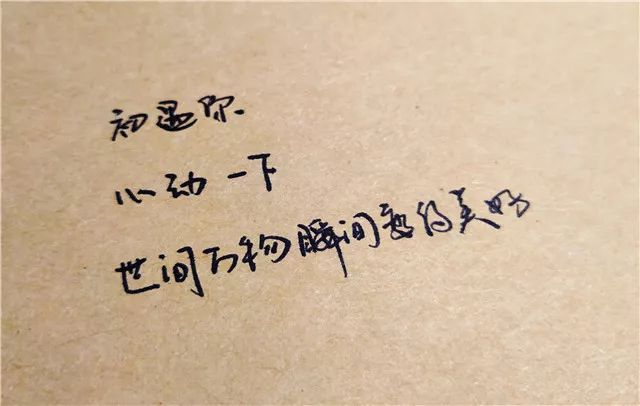 初遇你.
心动一下
世间万物瞬间变得美好